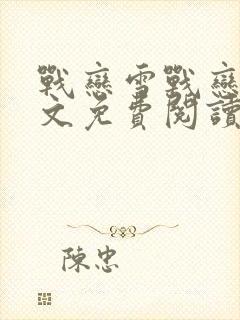 戰戀雪戰戀
文免費閱讀
陳忠